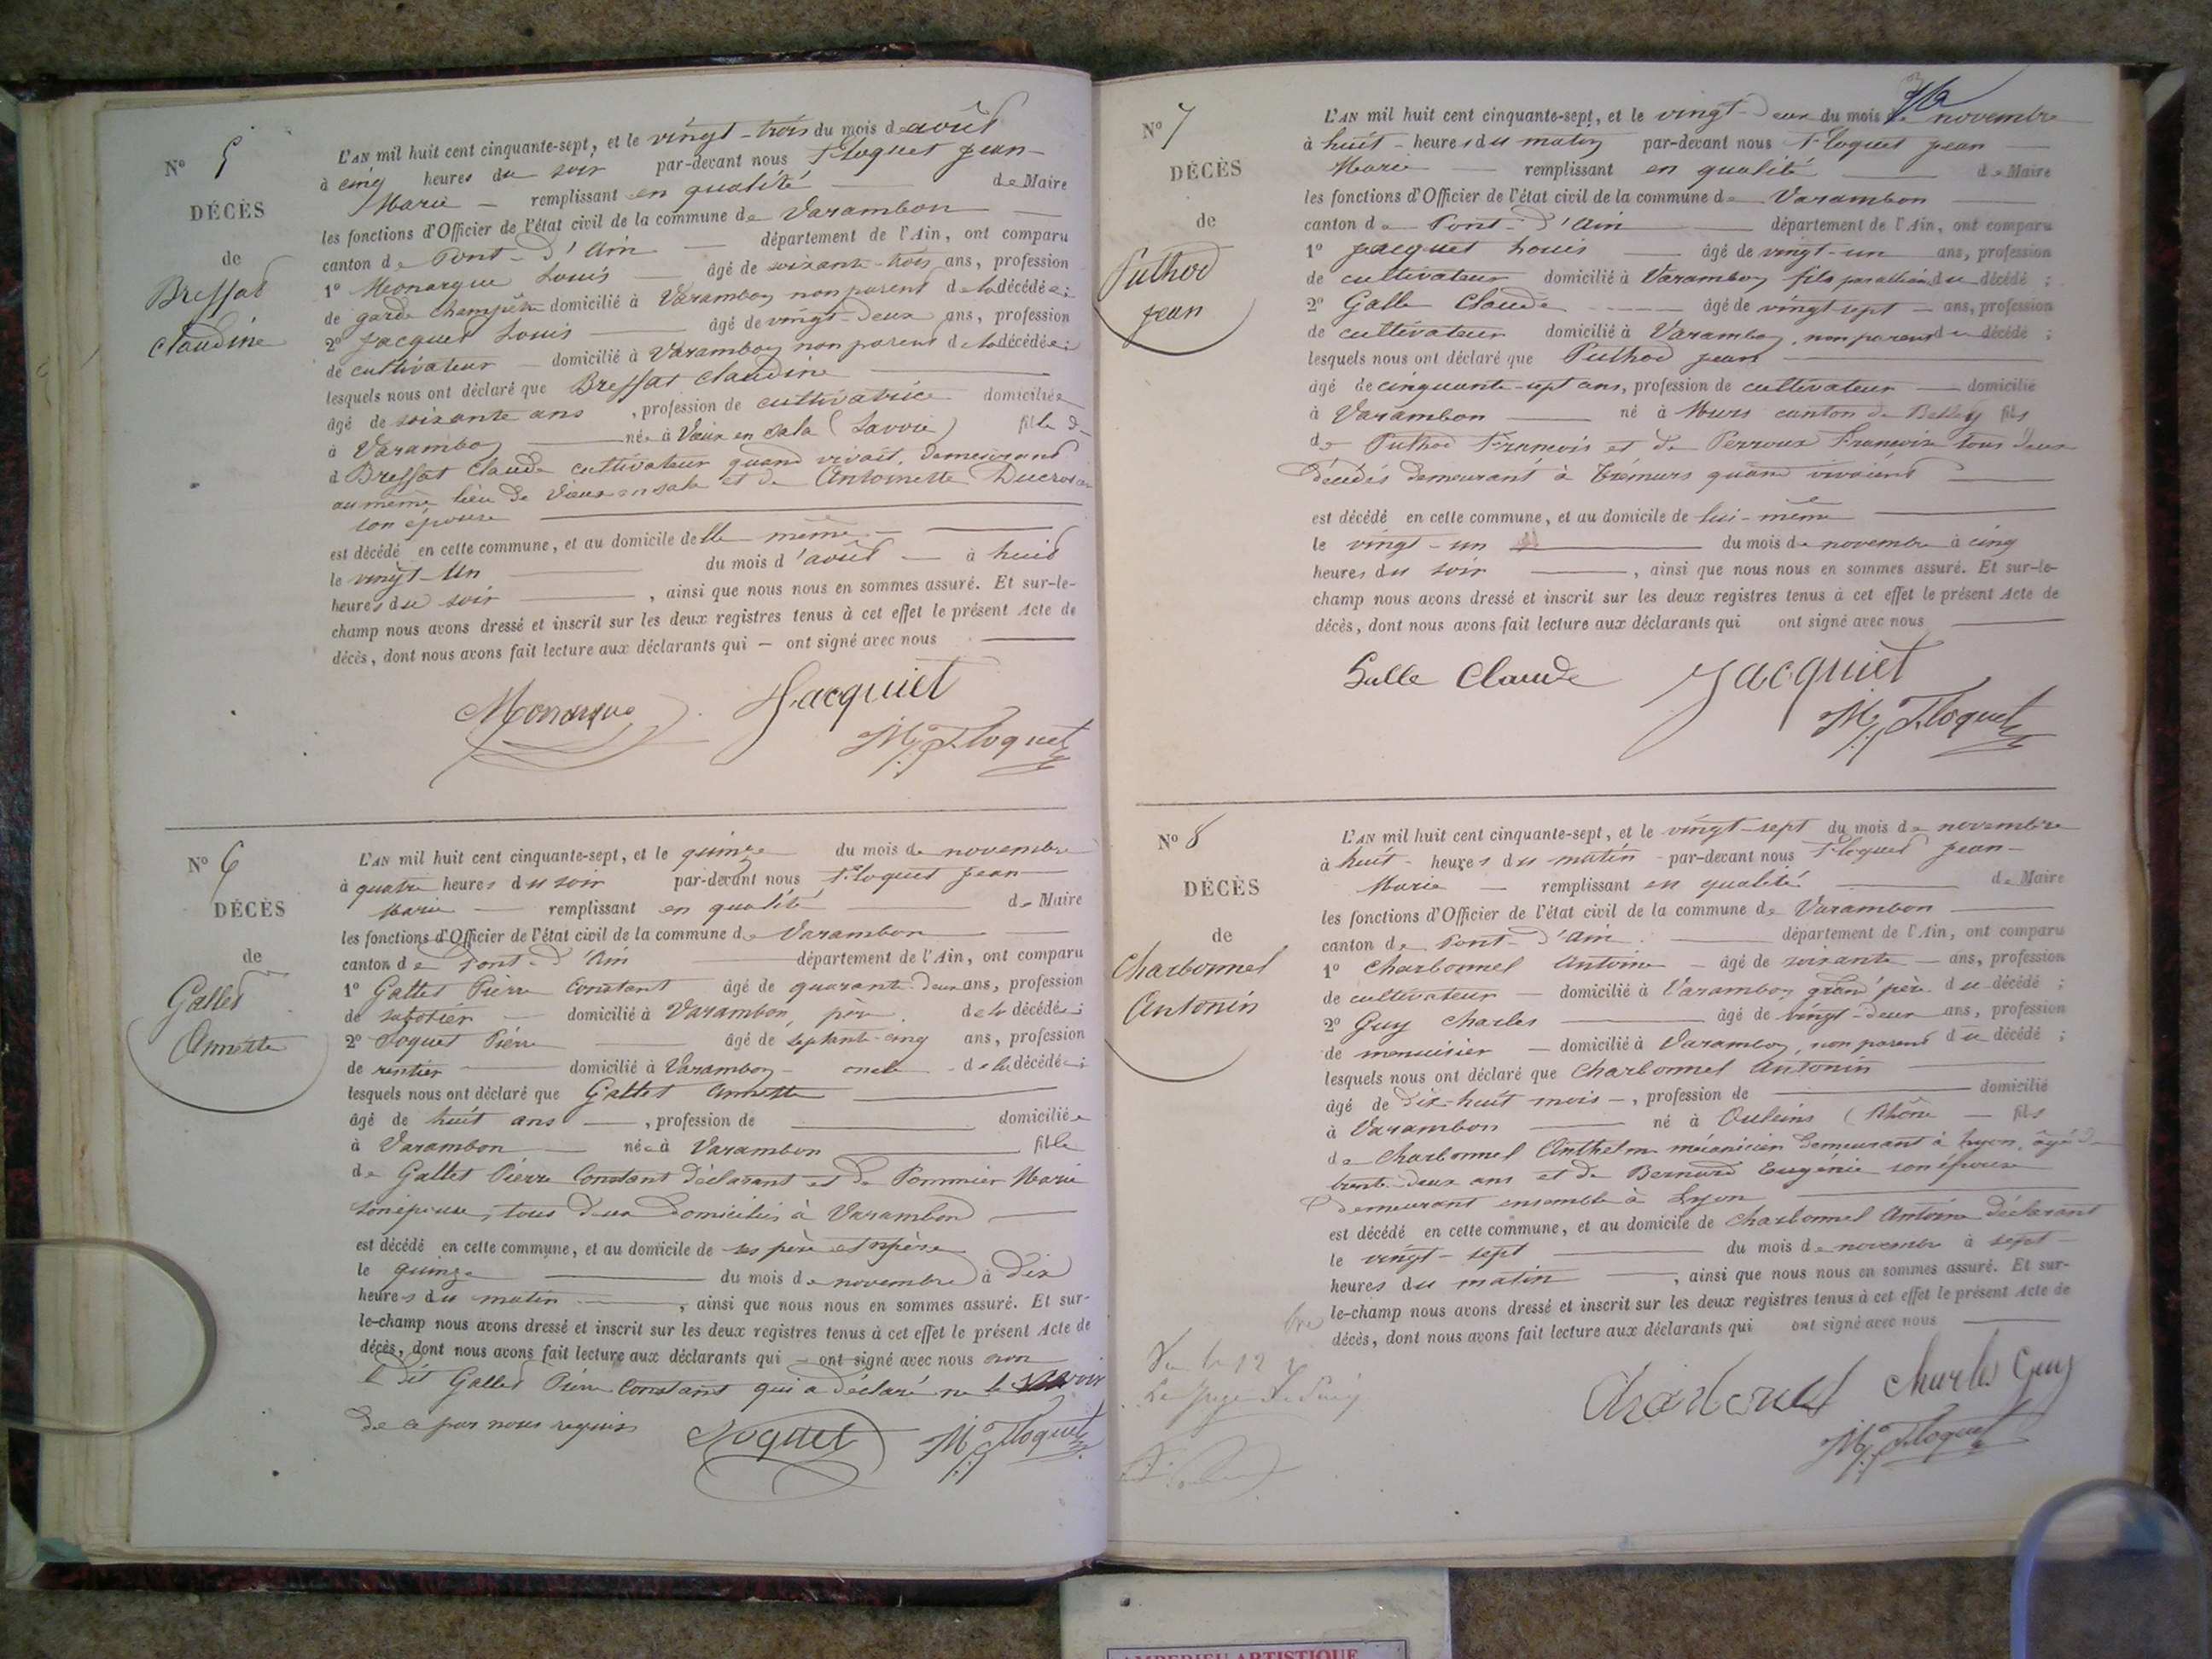 N° 5
DÉCÈS
de
Bressat
Claudine
L'AN mil huit cent cinquante-sept, et le vingt-trois du mois d'août
à cinq heures du soir par-devant nous Floquet Jean-
Marie — remplissant en qualité de Maire
les fonctions d'Officier de l'état civil de la commune de Varambon
canton de Pont-d'Ain département de l'Ain, ont comparu
1° Monarque Louis âgé de soixante-trois ans, profession
de garde champêtre domicilié à Varambon non parent de la décédée;
2° Jacquet Louis âgé de vingt-deux ans, profession
de cultivateur domicilié à Varambon non parent de la décédée;
lesquels nous ont déclaré que Bressat Claudine
âgé de soixante ans, profession de cultivatrice domiciliée
à Varambon née à Vieux en Sala (Savoie) fille d
d Bressat Claude cultivateur quand vivait, demeurant
au même lieu de Vieux en Sala et de Antoinette
son épouse
est décédé en cette commune, et au domicile d'elle même
le vingt-un du mois d'août — à huit
heures du soir, ainsi que nous nous en sommes assuré. Et sur-le-
champ nous avons dressé et inscrit sur les deux registres tenus à cet effet le présent Acte de
décès, dont nous avons fait lecture aux déclarants qui — ont signé avec nous
Monarque Jacquiet
M. J. Floquet
N° 6
DÉCÈS
de
Gallet
Annette
L'AN mil huit cent cinquante-sept, et le quinze du mois de novembre
à quatre heures du soir par-devant nous Floquet Jean
Marie — remplissant en qualité de Maire
les fonctions d'Officier de l'état civil de la commune de Varambon
canton de Pont-d'Ain département de l'Ain, ont comparu
1° Gallet Pierre Constant âgé de quarante-deux ans, profession
de sabotier domicilié à Varambon, père de la décédée;
2° Noquet Pierre âgé de septante-cinq ans, profession
de rentier domicilié à Varambon — oncle de la décédée;
lesquels nous ont déclaré que Gallet Annette
âgé de huit ans —, profession de domiciliée
à Varambon — née à Varambon fille
de Gallet Pierre Constant déclarant et de Pommier Marie
son épouse, tous deux domiciliés à Varambon
est décédé en cette commune, et au domicile de ses père et mère
le quinze du mois de novembre à dix
heures du matin, ainsi que nous nous en sommes assuré. Et sur-
le-champ nous avons dressé et inscrit sur les deux registres tenus à cet effet le présent Acte de
décès, dont nous avons fait lecture aux déclarants qui — ont signé avec nous non
le dit Gallet Pierre Constant qui a déclaré ne le savoir
de ce par nous requis Noquet M. J. Floquet
N° 7
DÉCÈS
de
Puthod
Jean
L'AN mil huit cent cinquante-sept, et le vingt-deux du mois de novembre
à huit heures du matin par-devant nous Floquet Jean
Marie — remplissant en qualité de Maire
les fonctions d'Officier de l'état civil de la commune de Varambon
canton de Pont-d'Ain département de l'Ain, ont comparu
1° Jacquet Louis âgé de vingt-un ans, profession
de cultivateur domicilié à Varambon fils par alliance du décédé;
2° Galle Claude âgé de vingt sept ans, profession
de cultivateur domicilié à Varambon, non parent du décédé;
lesquels nous ont déclaré que Puthod Jean
âgé de cinquante-sept ans, profession de cultivateur domicilié
à Varambon né à Murs canton de Belley fils
de Puthod François et de Perroux Françoise tous deux
décédés demeurant à Murs quand vivaient
est décédé en cette commune, et au domicile de lui-même
le vingt-un du mois de novembre à cinq
heures du soir, ainsi que nous nous en sommes assuré. Et sur-le-
champ nous avons dressé et inscrit sur les deux registres tenus à cet effet le présent Acte de
décès, dont nous avons fait lecture aux déclarants qui ont signé avec nous
Galle Claude Jacquiet
M. J. Floquet
N° 8
DÉCÈS
de
Charbonnel
Antonin
L'AN mil huit cent cinquante-sept, et le vingt-sept du mois de novembre
à huit heures du matin par-devant nous Floquet Jean-
Marie — remplissant en qualité de Maire
les fonctions d'Officier de l'état civil de la commune de Varambon
canton de Pont-d'Ain département de l'Ain, ont comparu
1° Charbonnel Antoine âgé de soixante ans, profession
de cultivateur domicilié à Varambon grand père du décédé;
2° Guy Charles âgé de vingt-deux ans, profession
de menuisier domicilié à Varambon, non parent du décédé;
lesquels nous ont déclaré que Charbonnel Antonin
âgé de dix-huit mois —, profession de domicilié
à Varambon né à Oulins (Rhône — fils
de Charbonnel Anthelme mécanicien demeurant à Lyon, âgé de
trente-deux ans et de Bernard Eugénie son épouse
demeurant ensemble à Lyon
est décédé en cette commune, et au domicile de Charbonnel Antoine déclarant
le vingt-sept du mois de novembre à sept
heures du matin, ainsi que nous nous en sommes assuré. Et sur-
le-champ nous avons dressé et inscrit sur les deux registres tenus à cet effet le présent Acte de
décès, dont nous avons fait lecture aux déclarants qui ont signé avec nous
Charbonnel Charles Guy
M. J. Floquet
AMPERIEU ARTISTIQUE